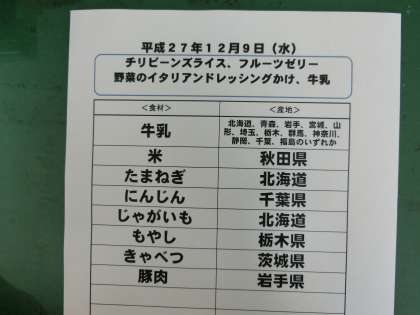 平成27年12月9日（水）
チリビーンズライス、フルーツゼリー
野菜のイタリアンドレッシングかけ、牛乳
＜食材＞ ＜産地＞
牛乳 北海道、青森、岩手、宮城、山
形、埼玉、栃木、群馬、神奈川、
静岡、千葉、福島のいずれか
米 秋田県
たまねぎ 北海道
にんじん 千葉県
じゃがいも 北海道
もやし 栃木県
きゃべつ 茨城県
豚肉 岩手県